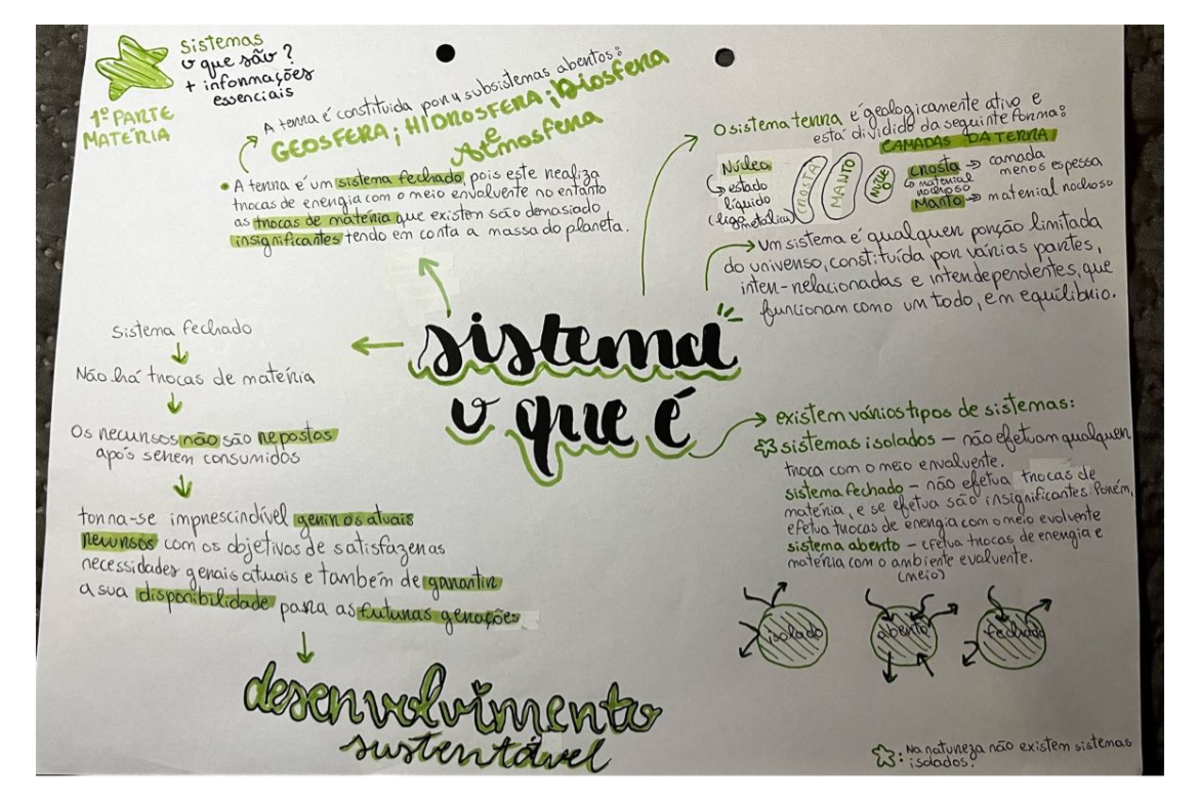 sistemas
o que são?
+ informações
essenciais
1º PARTE
MATÉRIA
A terra é constituida por 4 subsistemas abertos:
GEOSFERA; HIDROSFERA; Biosfera
e
Atmosfera
• A terra é um sistema fechado, pois este realiza
trocas de energia com o meio envolvente no entanto
as trocas de matéria que existem são demasiado
insignificantes tendo em conta a massa do planeta.
O sistema terra é geologicamente ativo e
está dividido da seguinte forma:
CAMADAS DA TERRA
Núcleo
estado
líquido
(liga metálica)
CROSTA
MANTO
NÚCLEO
crosta → camada
menos espessa
material
rochoso
Manto → material rochoso
Um sistema é qualquer porção limitada
do universo, constituída por várias partes,
inter-relacionadas e interdependentes, que
funcionam como um todo, em equilíbrio.
sistema
o que é
Sistema fechado
Não há trocas de matéria
Os recursos não são repostos
após serem consumidos
torna-se imprescindível gerir os atuais
recursos com os objetivos de satisfazer as
necessidades gerais atuais e também de garantir
a sua disponibilidade para as futuras gerações
desenvolvimento
sustentável
existem vários tipos de sistemas:
sistemas isolados – não efetuam qualquer
troca com o meio envolvente.
sistema fechado – não efetua trocas de
matéria, e se efetua são insignificantes. Porém,
efetua trocas de energia com o meio evolvente
sistema aberto – efetua trocas de energia e
matéria com o ambiente evolvente.
(meio)
isolado
aberto
fechado
: Na natureza não existem sistemas
isolados.